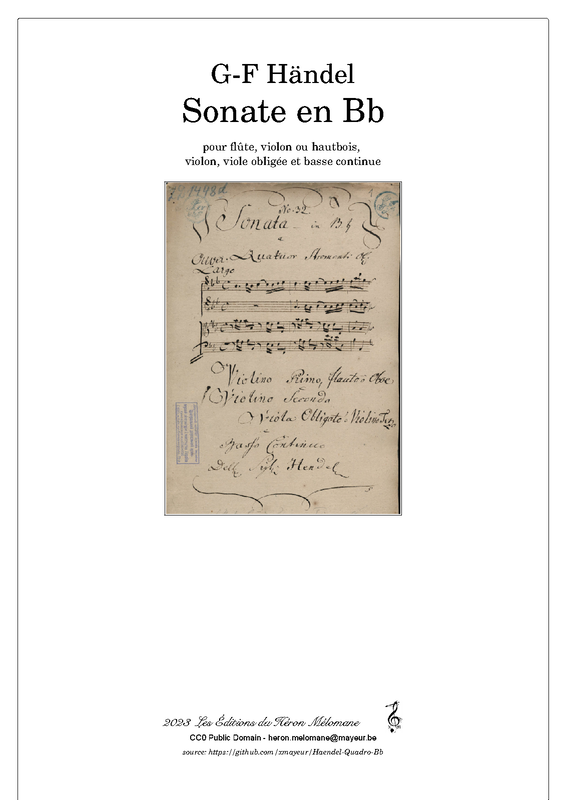 G-F Händel
Sonate en Bb
pour flûte, violon ou hautbois,
violon, viole obligée et basse continue
No. 32.
Sonata in B
Quatuor Stromenti
Largo
Violino Primo, flauto o Oboe
Violino Secondo
Viola Obligato o Violino
Basso Continuo
Dell Sigl: Hendel
2023 Les Éditions du Héron Mélomane
CC0 Public Domain - heron.melomane@mayeur.be
source: https://github.com/xmayeur/Haendel-Quadro-Bb